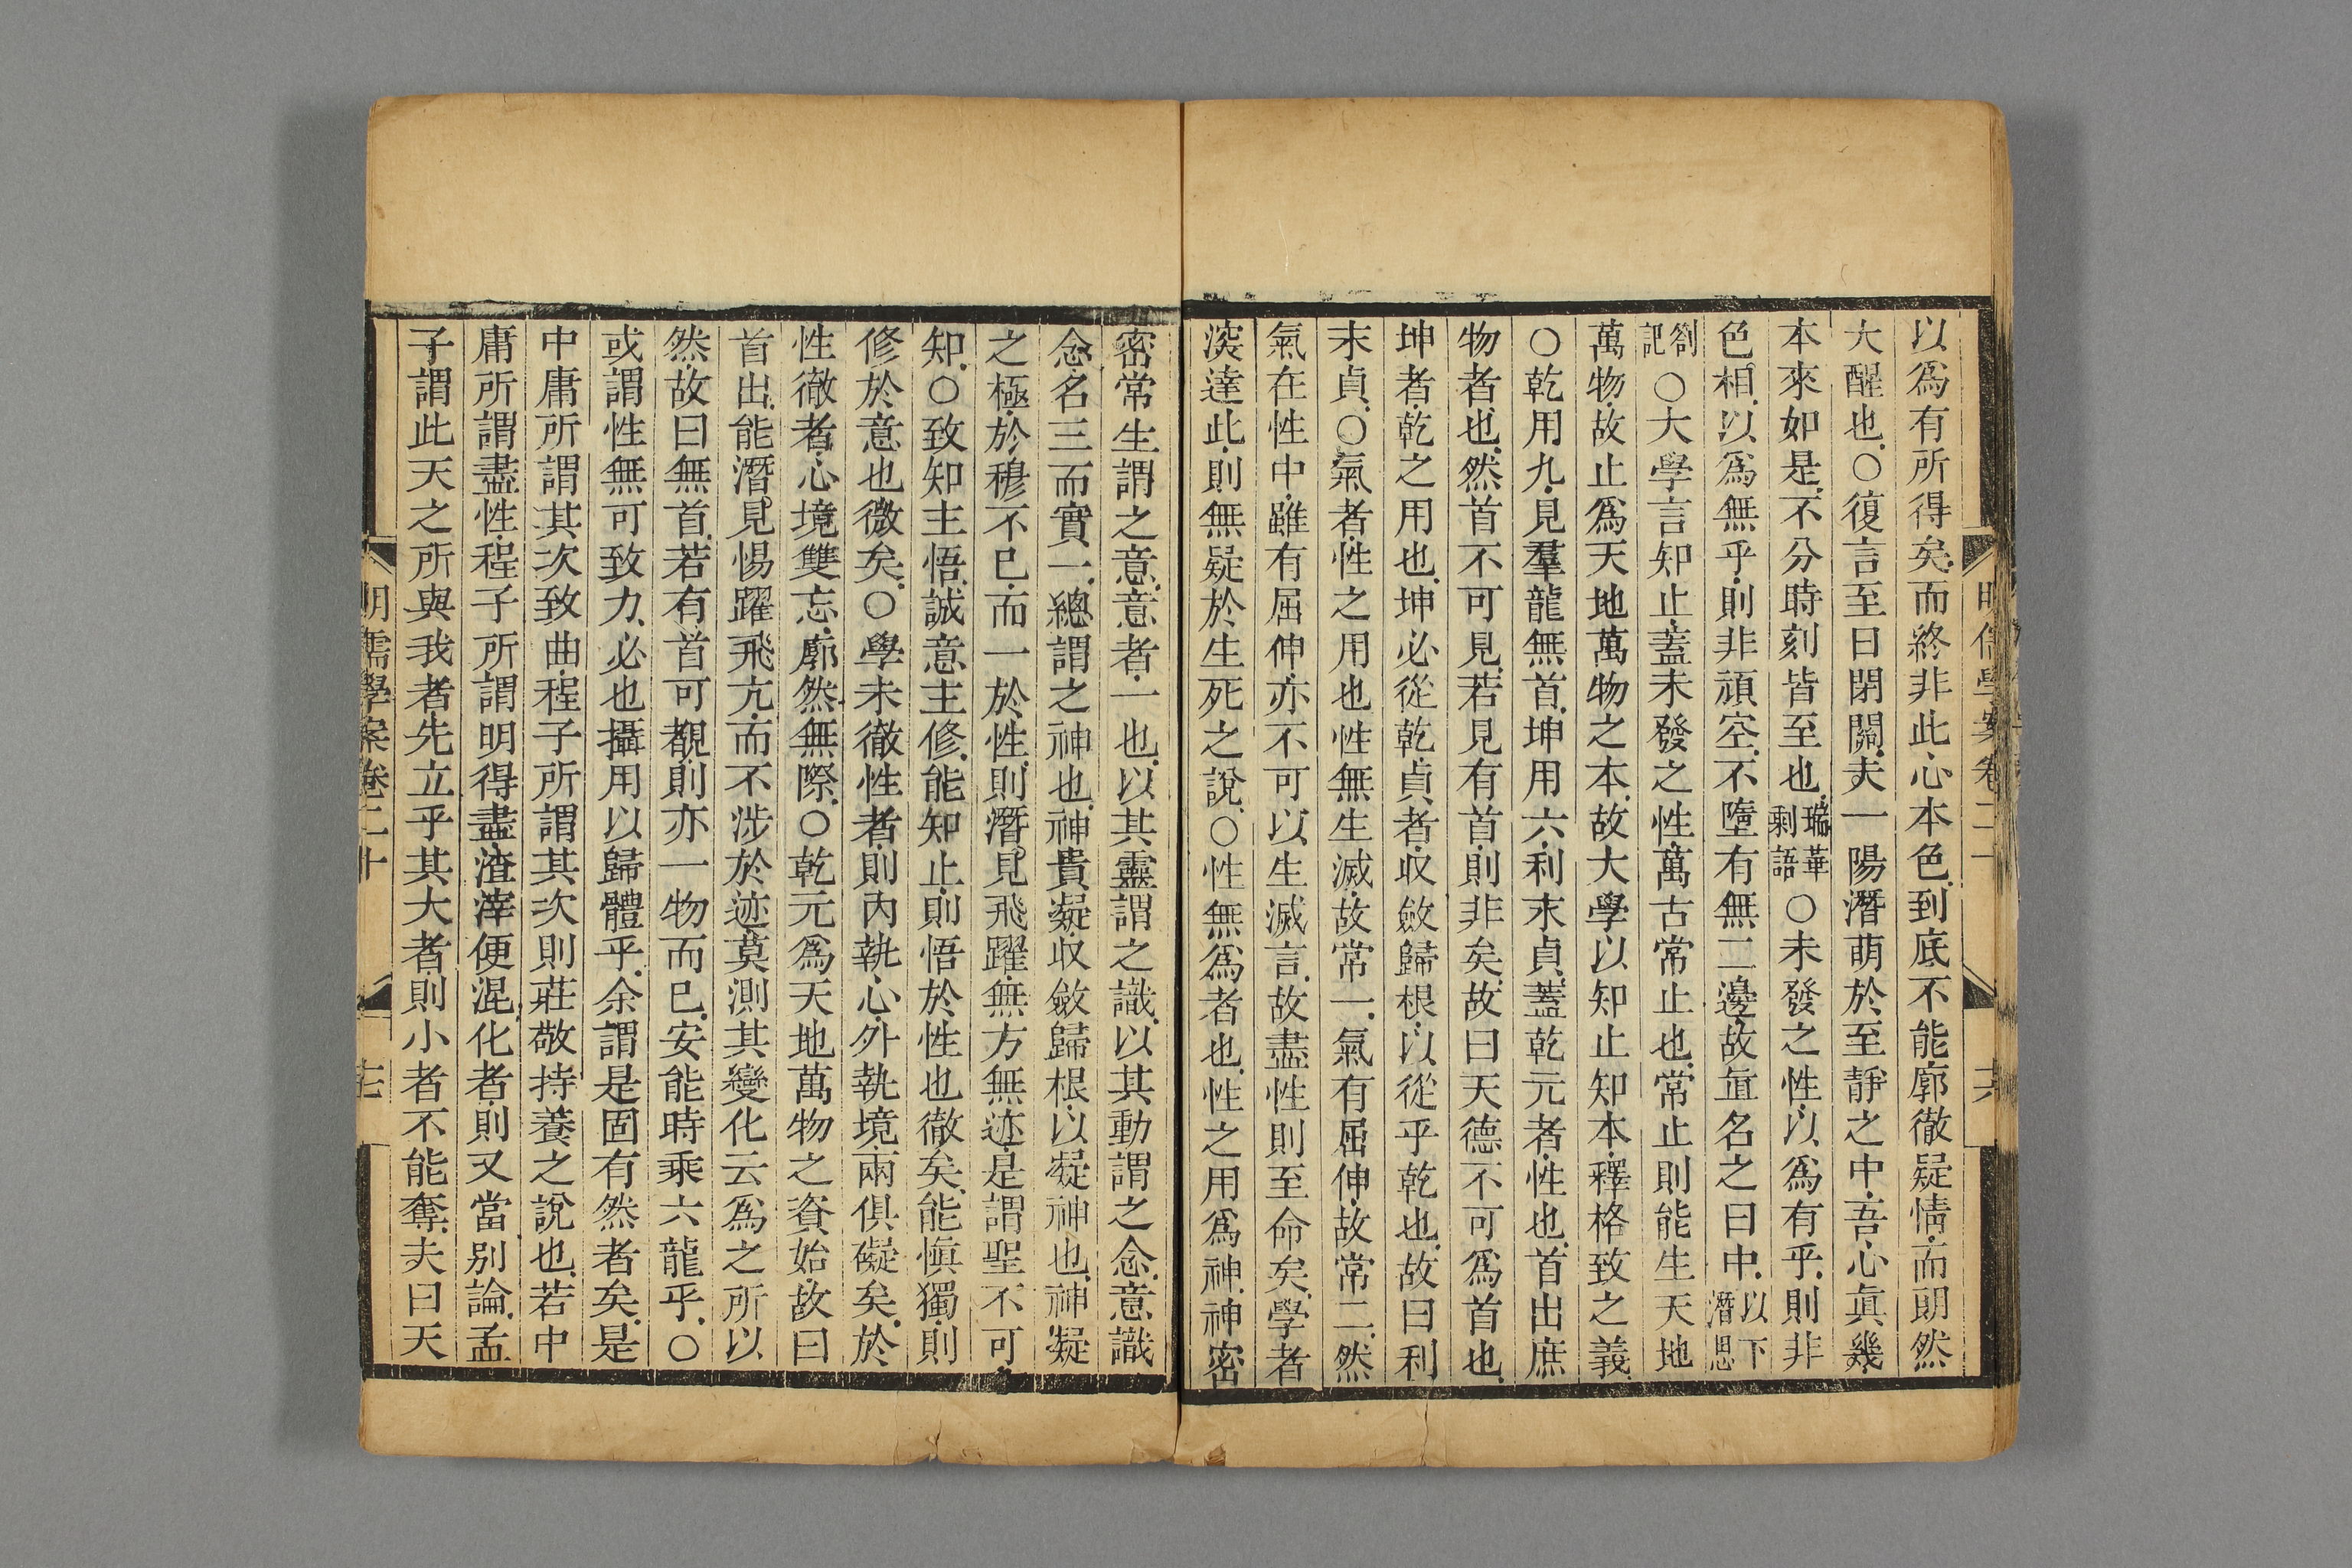 以爲有所得矣而終非此心本色到底不能廓徹疑情而朗然
大醒也○復言至日閉關夫一陽潛萌於至靜之中吾心眞幾
本來如是不分時刻皆至也瑞華剩語○未發之性以爲有乎則非
色相以爲無乎則非頑空不墮有無二邊故直名之曰中以下潛思
劄記○大學言知止蓋未發之性萬古常止也常止則能生天地
萬物故止爲天地萬物之本故大學以知止知本釋格致之義
○乾用九見羣龍無首坤用六利末貞蓋乾元者性也首出庶
物者也然首不可見若見有首則非矣故曰天德不可爲首也
坤者乾之用也坤必從乾貞者收斂歸根以從乎乾也故曰利
末貞○氣者性之用也性無生滅故常一氣有屈伸故常二然
氣在性中雖有屈伸亦不可以生滅言故盡性則至命矣學者
湥達此則無疑於生死之說○性無爲者也性之用爲神神密
密常生謂之意意者一也以其靈謂之識以其動謂之念意識
念名三而實一總謂之神也神貴凝收斂歸根以凝神也神凝
之極於穆不已而一於性則潛見飛躍無方無迹是謂聖不可
知○致知主悟誠意主修能知止則悟於性也徹矣能愼獨則
修於意也微矣○學未徹性者則內執心外執境兩俱礙矣於
性徹者心境雙忘廓然無際○乾元爲天地萬物之資始故曰
首出能潛見惕躍飛亢而不涉於迹莫測其變化云爲之所以
然故曰無首若有首可覩則亦一物而已安能時乘六龍乎○
或謂性無可致力必也攝用以歸體乎余謂是固有然者矣是
中庸所謂其次致曲程子所謂其次則莊敬持養之說也若中
庸所謂盡性程子所謂明得盡渣滓便混化者則又當別論孟
子謂此天之所與我者先立乎其大者則小者不能奪夫曰天
明儒學案卷二十